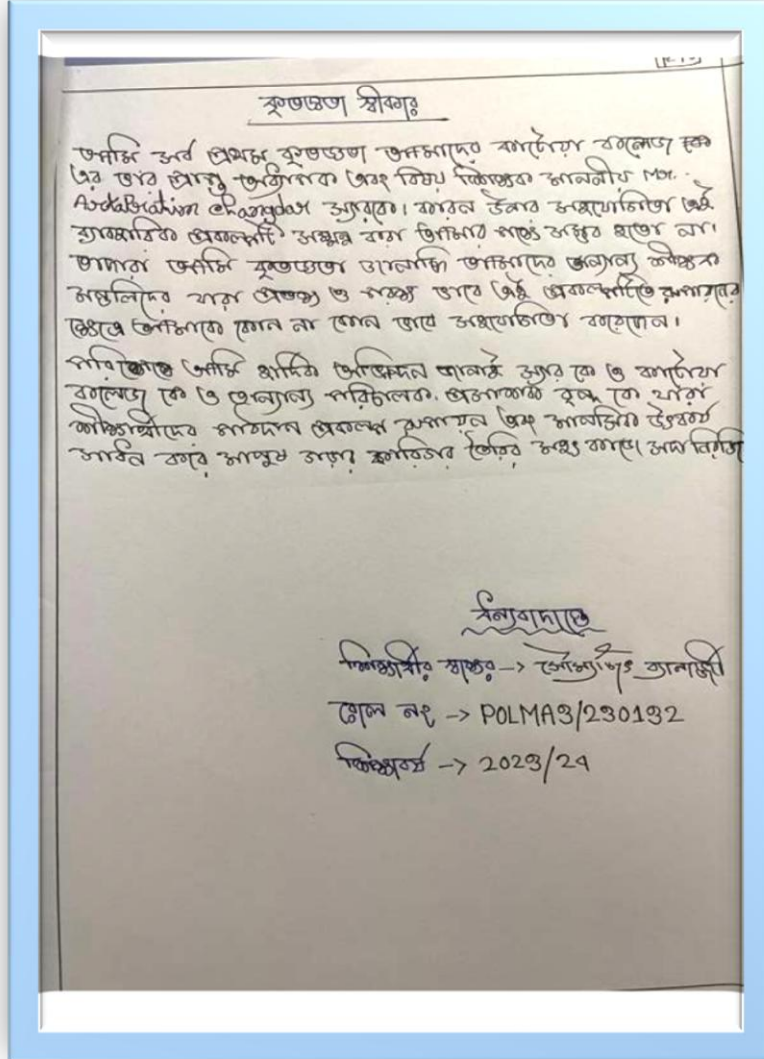 কৃতজ্ঞতা স্বীকার
আমি সর্ব প্রথম কৃতজ্ঞতা আমাদের কাটোয়া কলেজ কে
এর ভার প্রাপ্ত অধ্যাপক এবং বিষয় শিক্ষক মাননীয় Mr.
স্যারকে। কারন উনার সহযোগিতা এই
ব্যাবহারিক প্রকল্পটি সম্পন্ন করা আমার পক্ষে সম্ভব হতো না।
আমি কৃতজ্ঞতা আমাদের অন্যান্য শিক্ষক
মন্ডলিদের যারা প্রতক্ষ্য ও পরক্ষ্য ভাবে এই প্রকল্পটিতে রূপায়নের
ক্ষেত্রে আমাকে কোন না কোন ভাবে সহযোগিতা করেছেন।
পরিশেষে আমি হার্দিক অভিনন্দন জানাই স্যার কে ও কাটোয়া
কলেজ কে ও অন্যান্য পরিচালক, বৃন্দ কে যারা
শিক্ষার্থীদের প্রকল্প রূপায়ন এবং মানসিক উৎকর্ষ
সাধন করে মানুষ গড়ার কারিগর তৈরির মহৎ কাজে সদা নিয়জি
ধন্যবাদান্তে
শিক্ষার্থীর স্বাক্ষর -> সৌম্যজিৎ ব্যানার্জী
রোল নং -> POLMA3/230132
শিক্ষাবর্ষ -> 2023/24